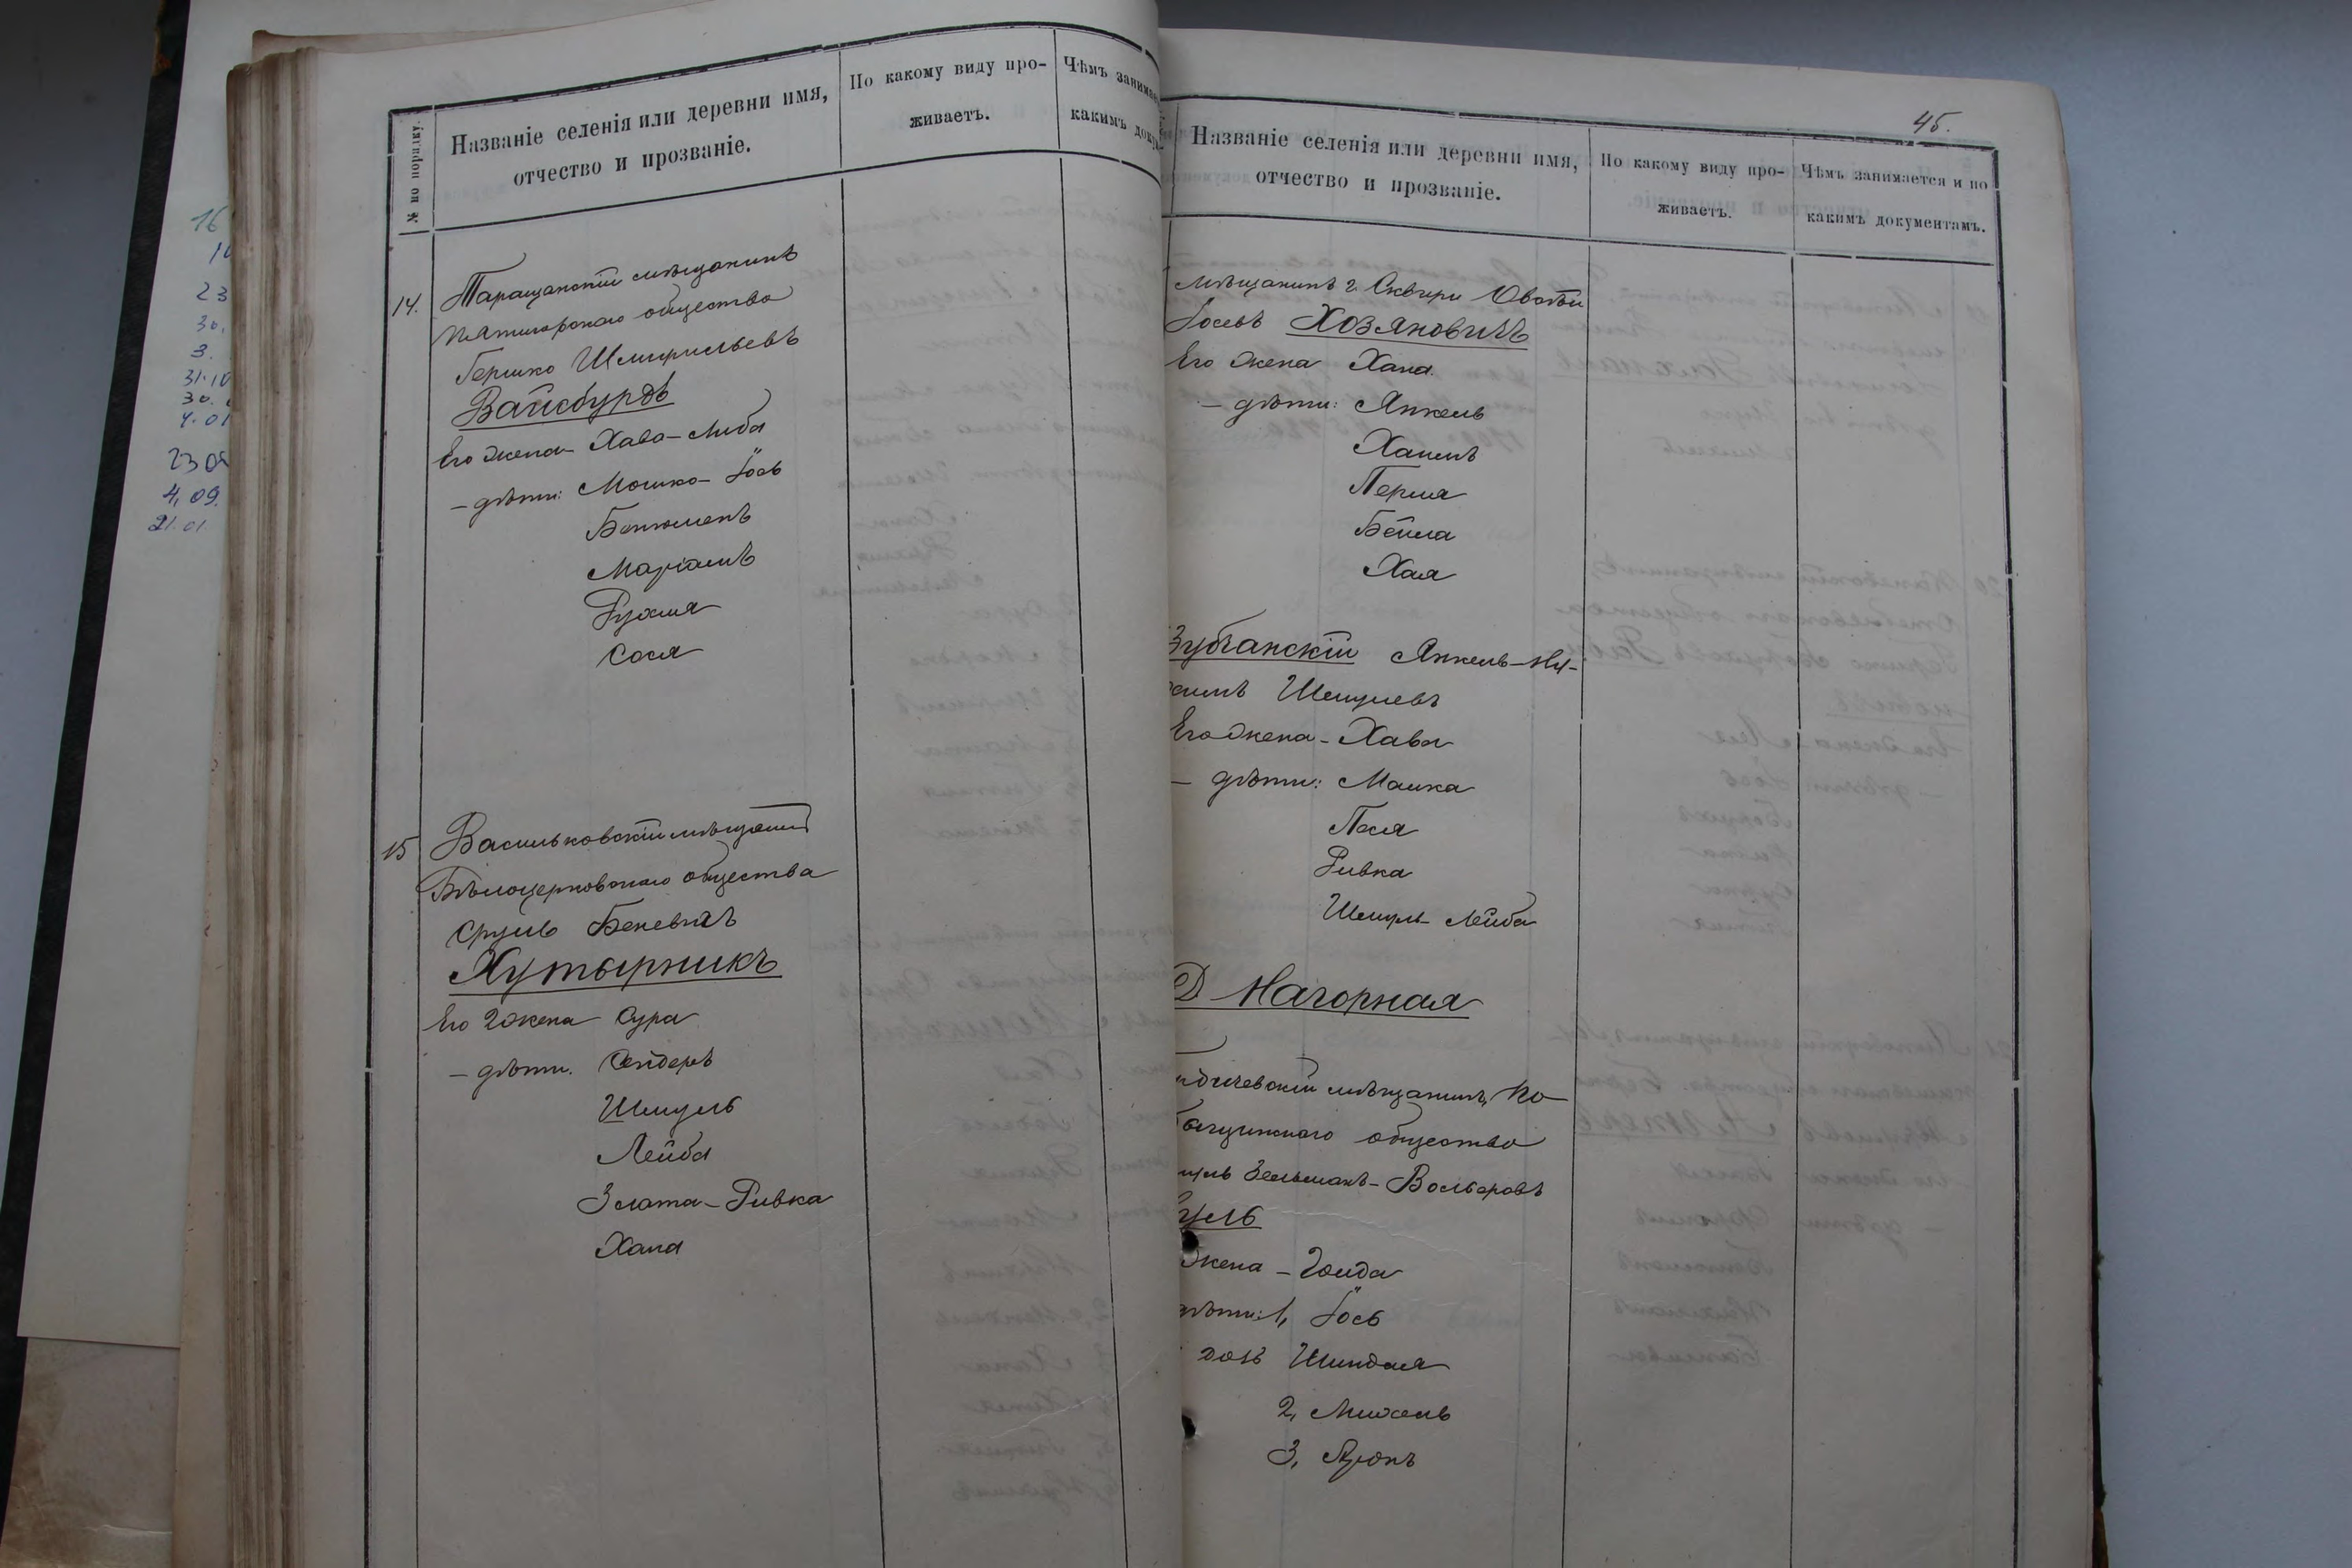 16
23
30.
3.
31.10
30.
4.01
23 09
4,09.
21.01
№ по порядку.
Названіе селенія или деревни имя,
отчество и прозваніе.
По какому виду про-
живаетъ.
Чѣмъ занимае
какимъ доку
14.
Таращанскій мѣщанинъ
Пятигорскаго общества
Гершко Шмирильевъ
Вайсбурдъ
Его жена - Хава - Либа
- дѣти: Мошко - Іось
Бенюменъ
Маріамъ
Рухля
Сося
15
Васильковскій мѣщанин
Бѣлоцерковскаго общества
Сруль Беневичъ
Хутырникъ
Его жена Сура
- дѣти. Сендеръ
Шмуль
Лейба
Злата - Ривка
Хана
45.
Названіе селенія или деревни имя,
отчество и прозваніе.
По какому виду про-
живаетъ.
Чѣмъ занимается и по
какимъ документамъ.
Мѣщанинъ г. Сквири
Іосевъ Хозяновичъ
Его жена Хана.
- дѣти: Янкель
Хаимъ
Перля
Бейла
Хая
Зубчанскій Янкель - Ну-
химъ Шмулевъ
Его жена - Хава
- дѣти: Малка
Песя
Ривка
Шмуль - Лейба
Д Нагорная
дичевскій мѣщанинъ, По-
общество
Зельманъ - Вольфовъ
жена - Гольда
дѣти: 1, Іось
дочь Шиндля
2, Михель
3, Аронъ